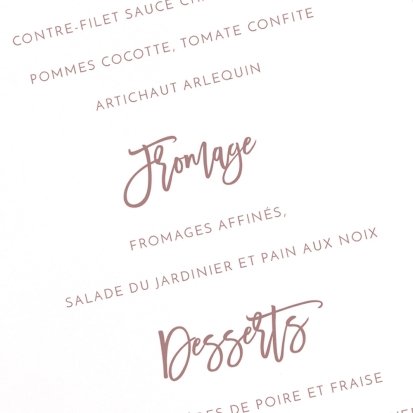 CONTRE-FILET SAUCE
POMMES COCOTTE, TOMATE CONFITE
ARTICHAUT ARLEQUIN
Fromage
FROMAGES AFFINÉS,
SALADE DU JARDINIER ET PAIN AUX NOIX
Desserts
DE POIRE ET FRAISE